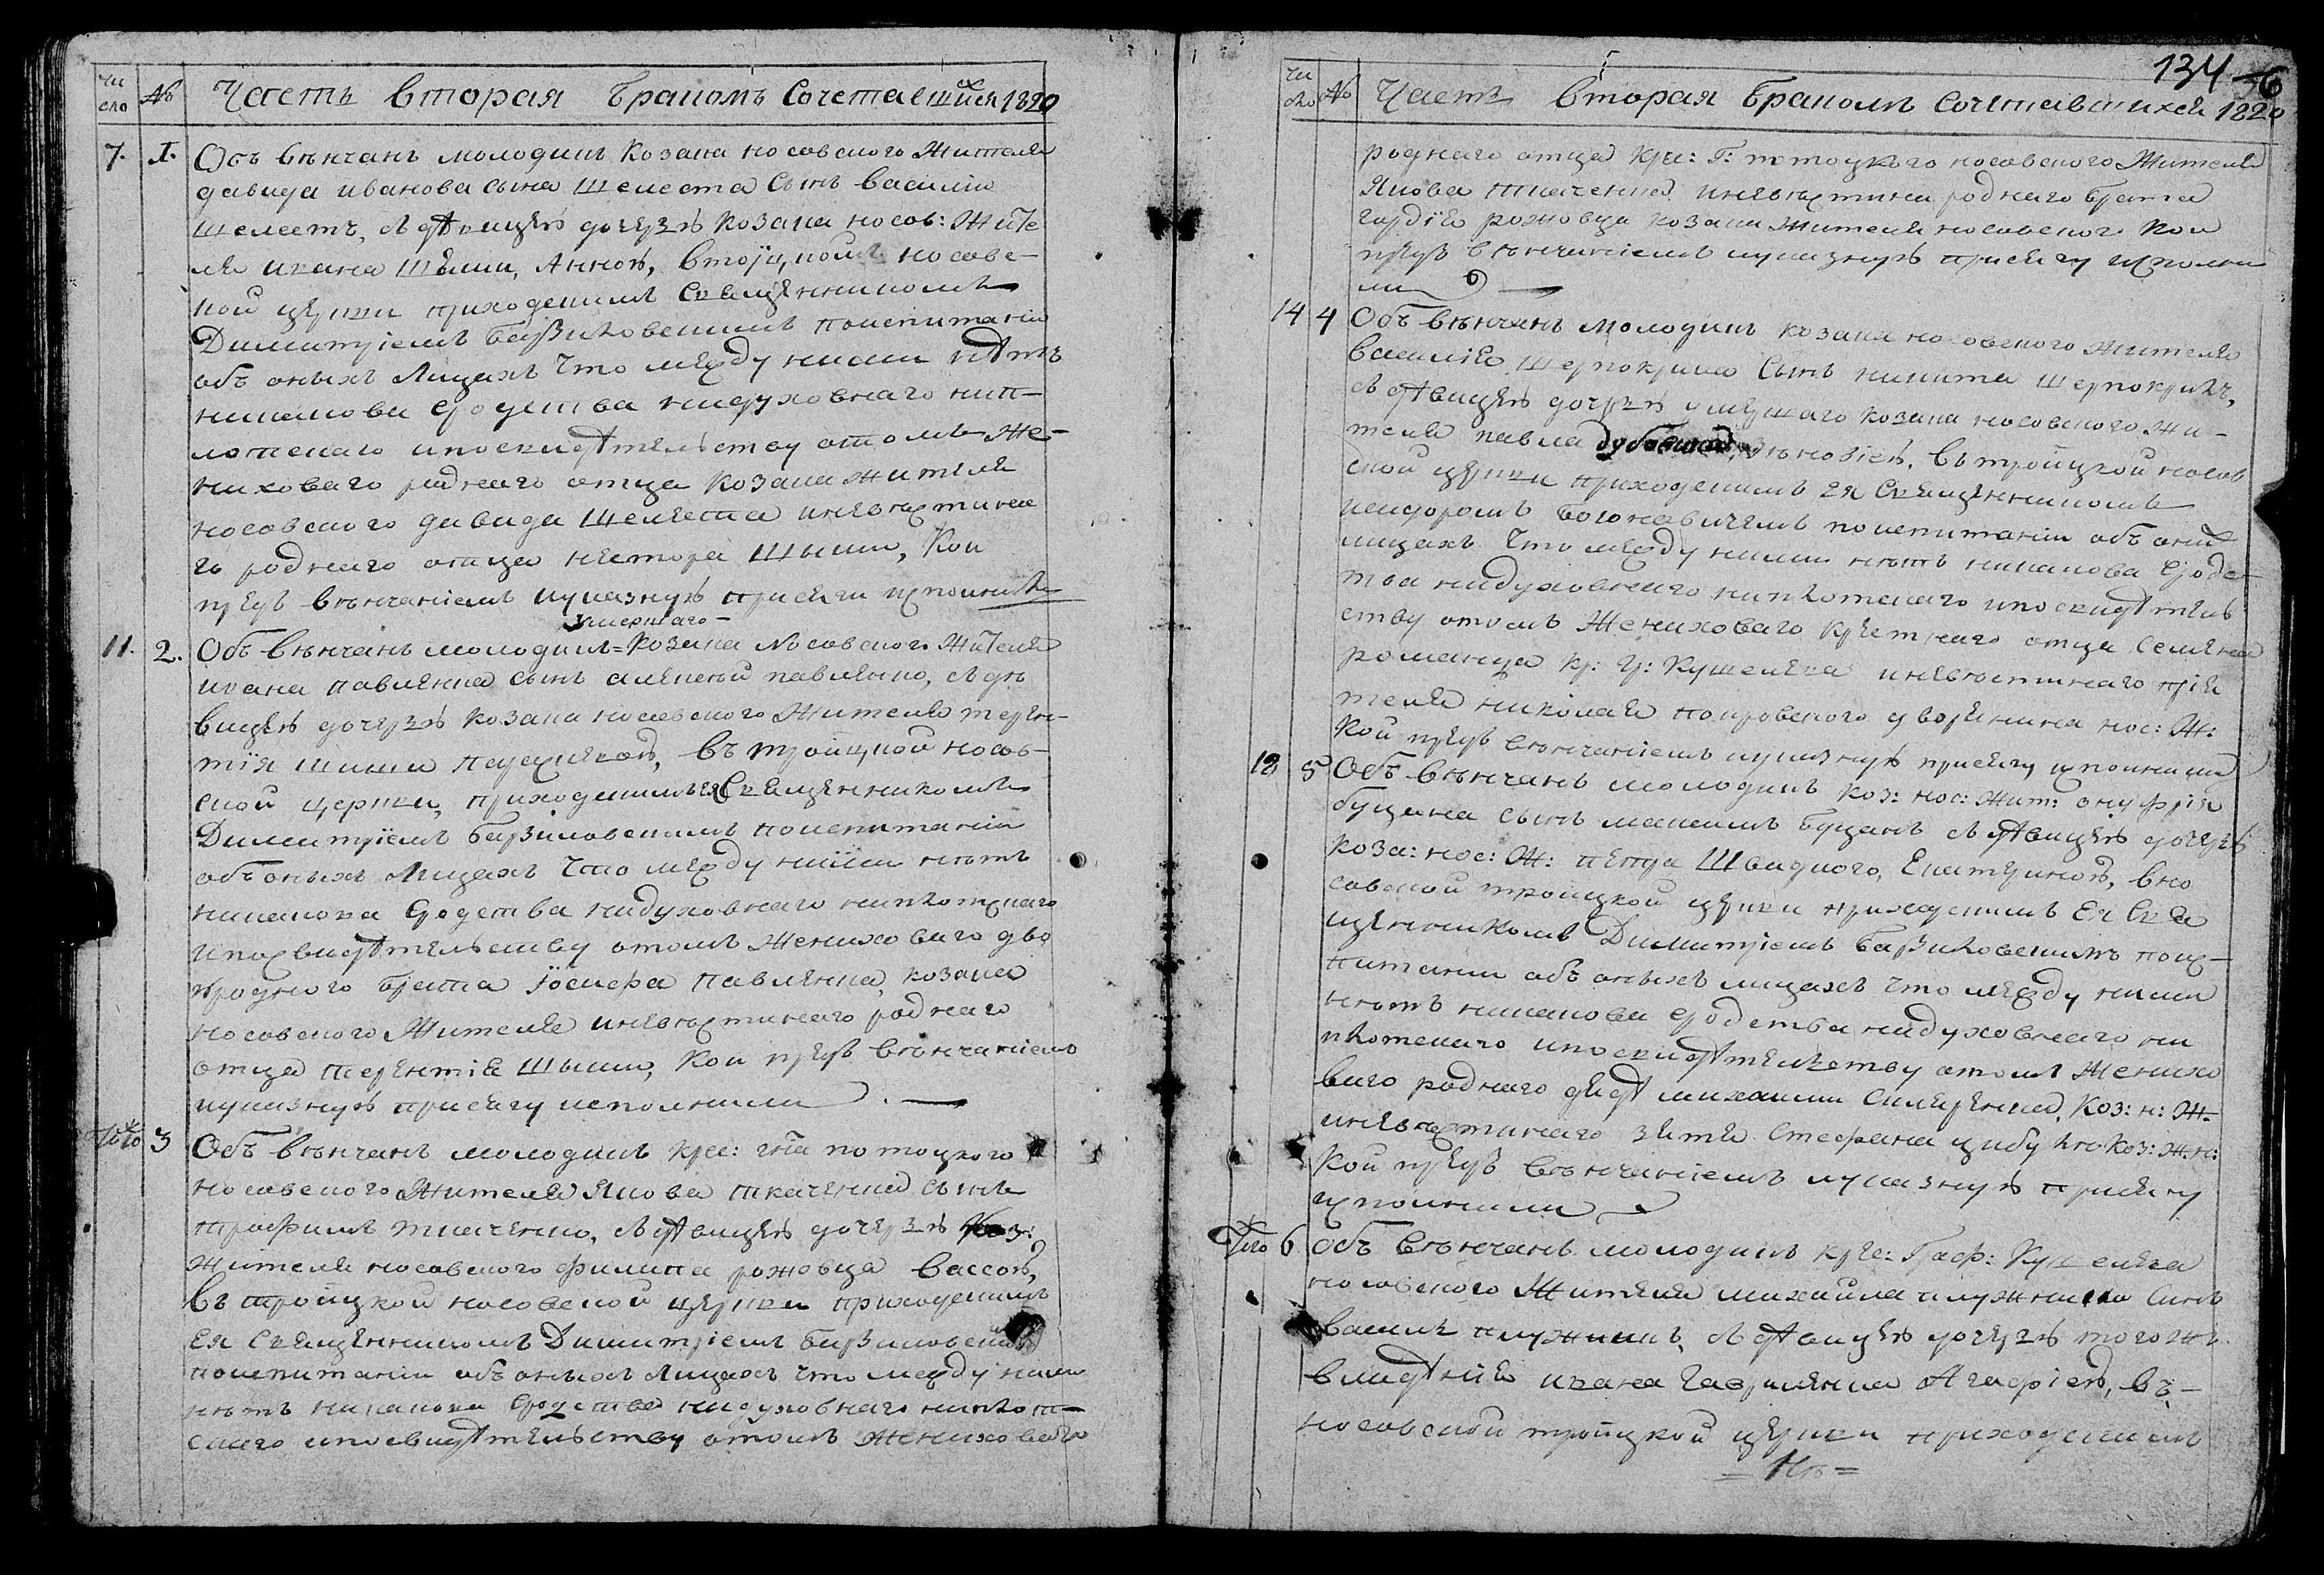 Чи
сло № Часть Вторая Бракомъ Сочетавшихся 1820
7. 1. Обвѣнчанъ молодикъ Козака носовского Жителя
давида иванова сына Шелеста Сынъ василій
шелестъ, съ дѣвицею дочерью козака носов: Жите
ля ивана Шыши, Анною, Втроицкой носовс-
кой церкви приходскимъ Священникомъ
Димитріемъ Базиловскимъ поиспитаніи
объ оныхъ Лицахъ Что между ними нѣтъ
никакова сродства нидуховнаго нип-
лотскаго ипосвидѣтельству отомъ Же-
нихового роднаго отца козака жителя
носовского давида Шелеста иневѣстина
го роднаго отца нестора Шыши, Кои
предъ вѣнчаніемъ иуказную присягу исполнили
умершаго-
11. 2. Обвѣнчанъ молодикъ= козака Носовского Жителя
ивана павленка сынъ алексѣй павленко, сдѣ
вицею дочерью козака носовского Жителя терен-
тія шиши параскевою, въ троицкой носов-
ской церкви, приходскимъ ея Священникомъ
Димитріемъ базиловскимъ поиспитаніи
объ оныхъ Лицахъ Что между ними нѣтъ
никакова сродства нидуховнаго ниплотскаго
ипосвидѣтельству отомъ Женихового дво
юродного брата іосифа Павленка, козака
носовского Жителя иневѣстинаго роднаго
отца терентія Шыши, Кои предъ вѣнчаніемъ
иуказную присягу исполнили
Того 3 Обвѣнчанъ молодикъ кре: гна потоцкого
носовского Жителя Якова ткаченка сынъ
трофимъ ткаченко, съ дѣвицею дочерью коз:
жителя носовского филипа рожовца Вассою,
Въ троицкой носовской церкви приходскимъ
ея Священникомъ Димитріемъ базиловскимъ
поиспитаніи объ оныхъ Лицахъ что между ними
нѣтъ никакова Сродства нидуховнаго нипло-
скаго ипосвидѣтельству отомъ Женихового
134 6
Чи
сло № Часть Вторая Бракомъ Сочитавшихся 1820
роднаго отца кре: Г: потоцкого носовского Жителя
Якова ткаченка иневѣстина роднаго брата
гордія рожовца козака жителя носовского Кои
предъ вѣнчаніемъ иуказную присягу исполни
ли
14 4 Обвѣнчанъ молодикъ козака носовского жителя
василія шерпокрила Сынъ никита шерпокрилъ,
съ дѣвицею дочерью умершаго козака носовского Жи-
теля павла зѣновіею, въ троицкой носов
ской церкви приходскимъ ея Священникомъ
исидоромъ поиспитаніи объ оныхъ
лицахъ Что между ними нѣтъ никакова сродс-
тва нидуховнаго ниплотскаго ипосвидѣтель
ству отомъ Женихового крестнаго отца Семена
романца кр: гр: Кушелева иневѣстинаго прія
теля николая покровского дворянина нос: Ж:
Кои предъ вѣнчаніемъ иуказную присягу исполнили
18 5 Обвѣнчанъ молодикъ коз: нос: жит: онуфрія
буцана сынъ максимъ буцанъ съ дѣвицею дочерью
коза: нос: Ж: петра Швидкого, Екатериною, вно
совской троицкой церкви приходскимъ Ея Свя
щенникомъ Димитріемъ базиловскимъ поис-
питаніи объ оныхъ лицахъ что между ними
нѣтъ никакова сродства нидуховнаго ни
плотскаго ипосвидѣтельству отомъ Женихо
ваго роднаго коз: н: Ж-
иневѣстинаго зятя Стефана цибулю коз: ж. н:
Кои предъ вѣнчаніемъ иуказную присягу
исполнили
Того 6 обвѣнчанъ молодикъ кре: Граф: Кушелева
носовского Жителя михайла плужника Синъ
василь плужникъ, съ дѣвицею дочерью тогожъ
владѣнія ивана гавриленка Агафіею, въ-
носовской троицкой церкви приходскимъ